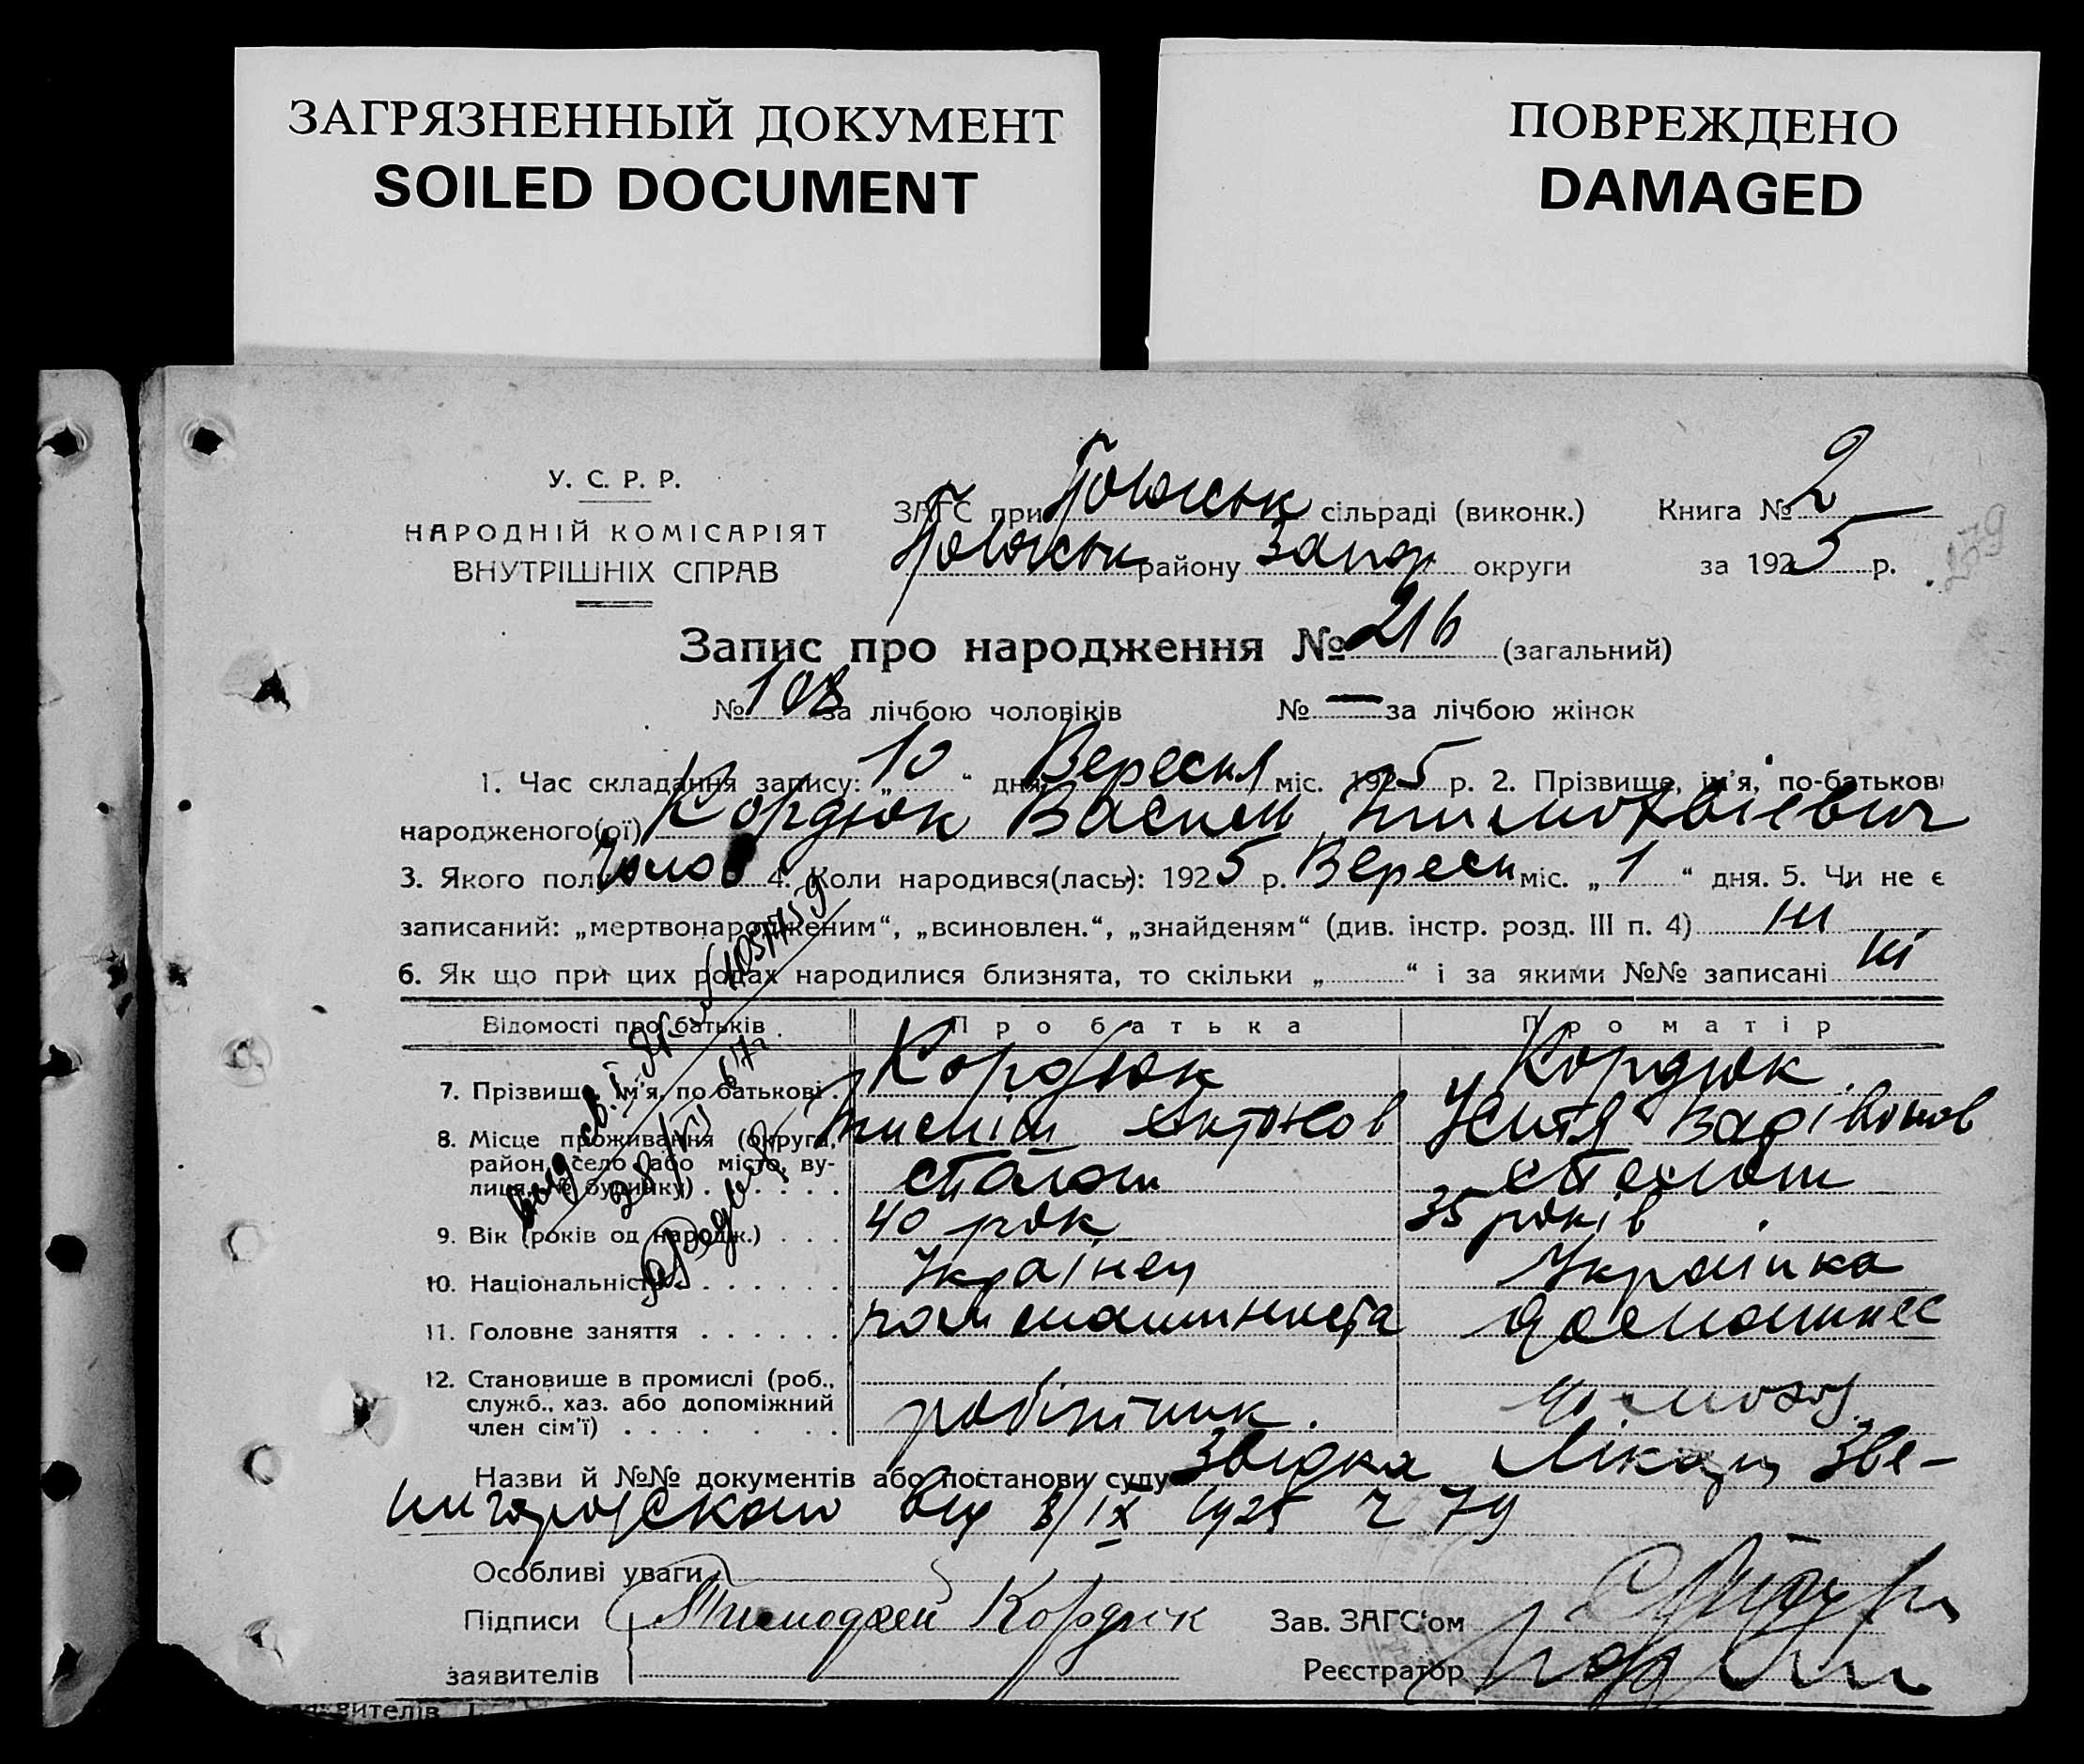 ЗАГРЯЗНЕННЫЙ ДОКУМЕНТ
SOILED DOCUMENT
ПОВРЕЖДЕНО
DAMAGED
У. С. Р. Р.
НАРОДНІЙ КОМІСАРІЯТ
ВНУТРІШНІХ СПРАВ
ЗАГС при сільраді (виконк.) Книга № 2
району Запор округи за 1925 р.
239
Запис про народження № 216 (загальний)
№ 108 за лічбою чоловіків № — за лічбою жінок
1. Час складання запису: „ 10 “ дня Вересня міс. 1925 р. 2. Прізвище, ім’я, по-батькові
народженого(ої) Кордюк Василь
3. Якого полу Чолов 4. Коли народився(лась): 1925 р. Вересн міс. „ 1 “ дня. 5. Чи не є
записаний: „мертвонародженим“, „всиновлен.“, „знайденям“ (див. інстр. розд. III п. 4) ні
6. Як що при цих родах народилися близнята, то скільки „ “ і за якими №№ записані ні
Відомості про батьків. Про батька Про матір
7. Прізвище, ім’я, по батькові. Кордюк Кордюк
8. Місце проживання (округа, район, село або місто, вулиця, № будинку)
9. Вік (років од народж.) 40 рок 35 років
10. Національність Українец Українка
11. Головне заняття
12. Становище в промислі (роб., служб., хаз. або допоміжний член сім’ї) робітник.
Назви й №№ документів або постанови суду Звідка Лікарн Зве-
нигородского від 8/IX 1925 ч 79
Особливі уваги
Підписи Тимофей Кордюк Зав. ЗАГС‘ом
заявителів Реєстратор
вителів